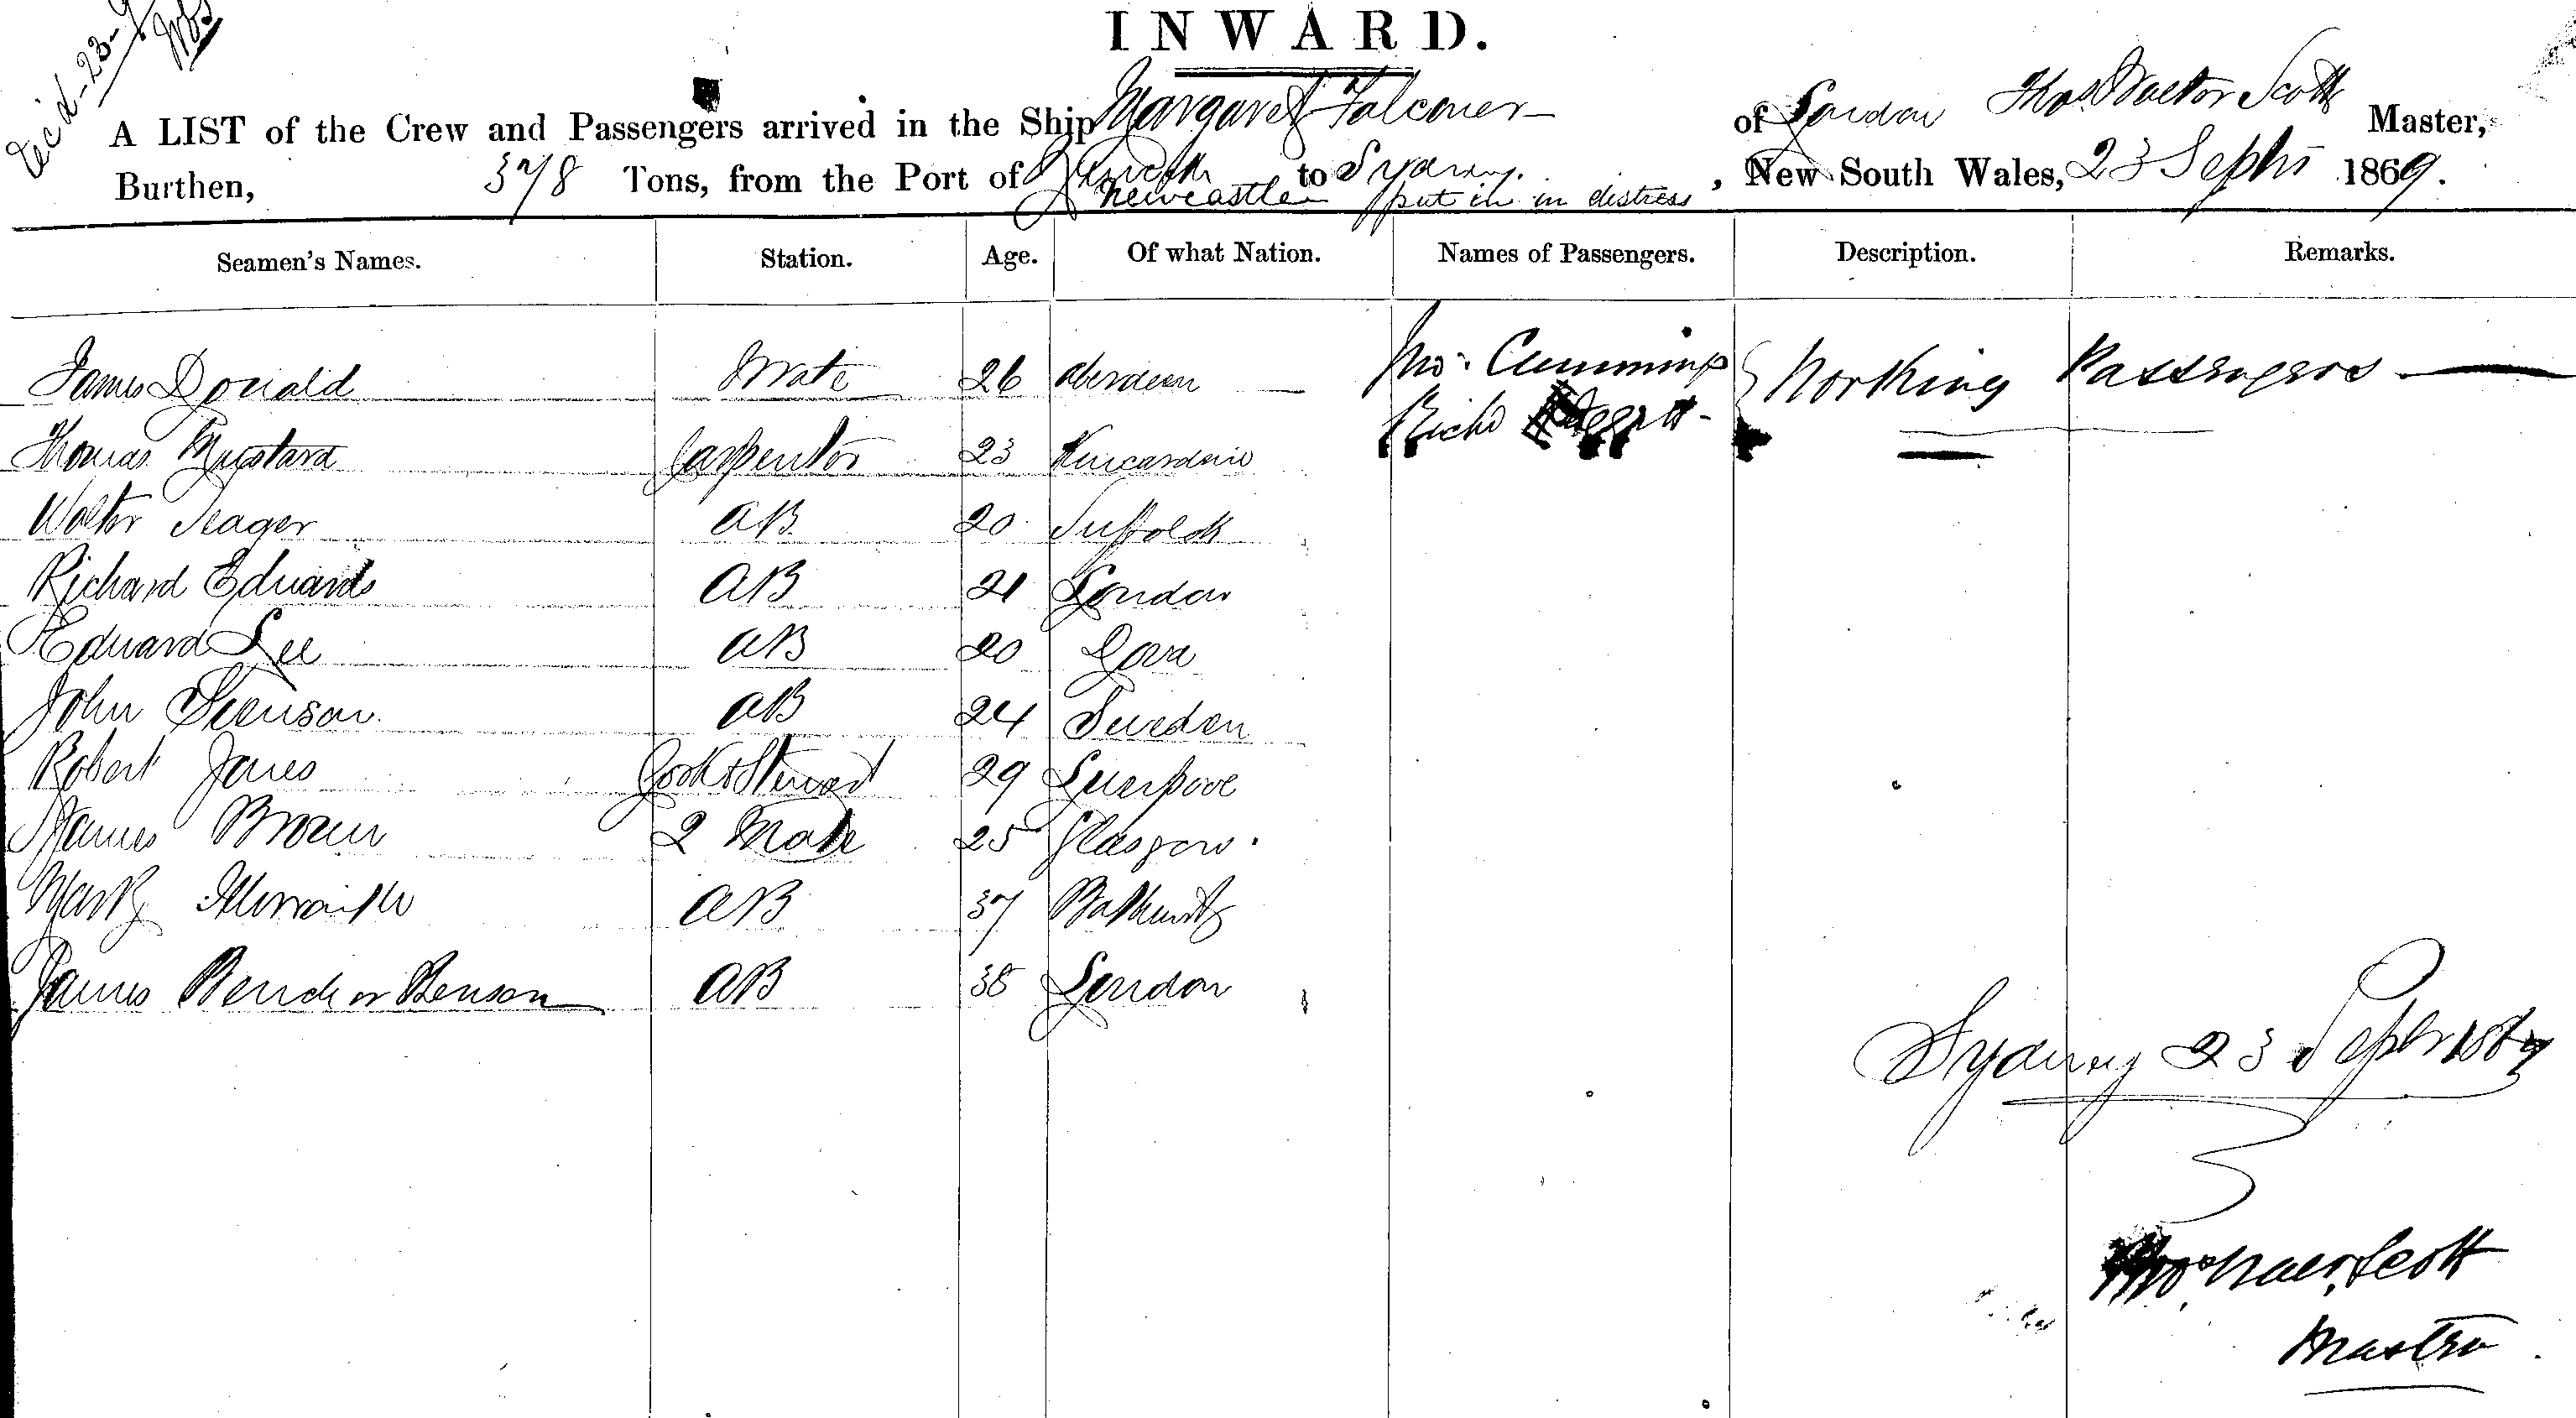 INWARD.
A LIST of the Crew and Passengers arrived in the Ship Margaret Falconer of London Thos Walter Scott Master,
Burthen, 378 Tons, from the Port of to Sydney, New South Wales, 23 Septr 1869.
Newcastle put in in distress
Seamen's Names. Station. Age. Of what Nation. Names of Passengers. Description. Remarks.
James Donald Mate 26 Aberdeen Jno. Cumming Working Passengers
Thomas Mustard Carpenter 23 Kincardine Richd
Walter Seager AB 20 Suffolk
Richard Edwards AB 21 London
Edward Lee AB 20
John Svenson AB 24 Sweden
Robert Jones Cook & Steward 29 Liverpool
James Brown 2 Mate 25 Glasgow.
Mark AB 37
James Bench or Benson AB 38 London
Sydney 23 Septr 1869
Thos Walter Scott
Master